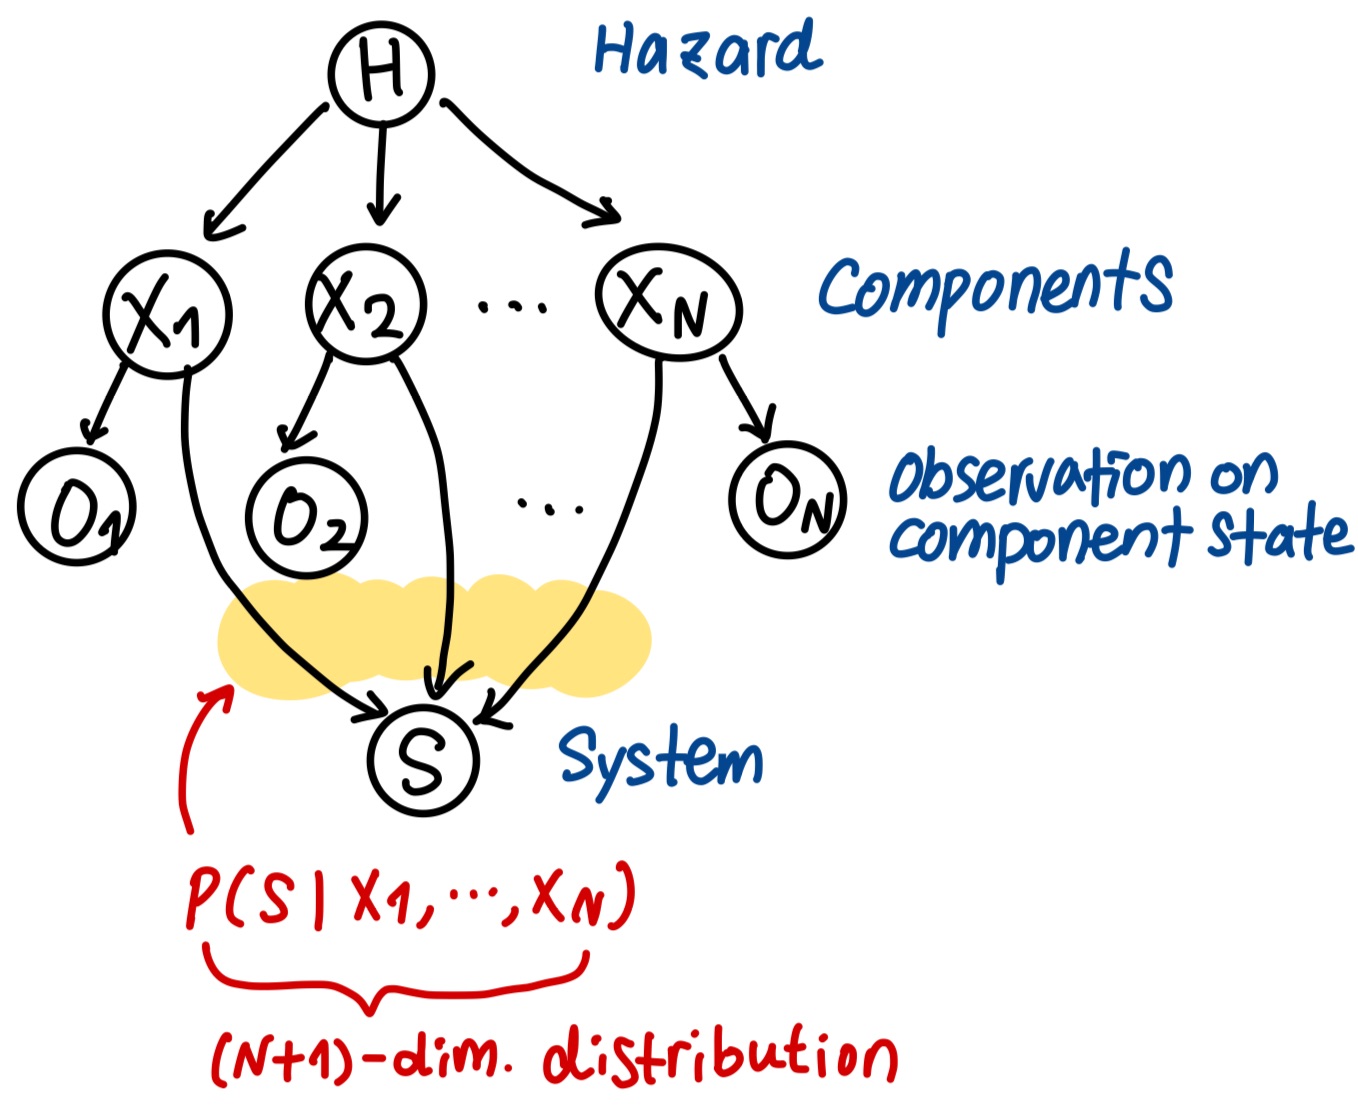 H Hazard
X1 X2 ... XN Components
O1 O2 ... ON Observation on
component state
S System
P(S | X1, ..., XN)
(N+1)-dim. distribution